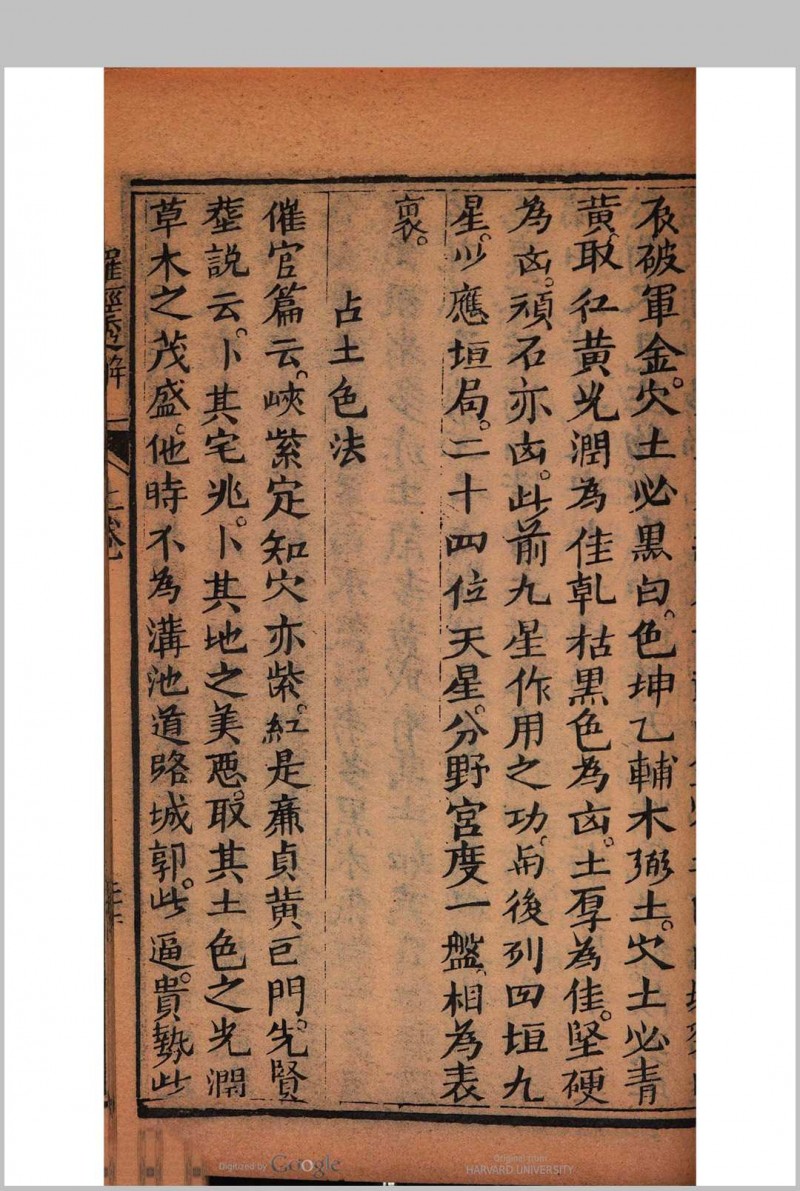 辰破軍金。穴土必黑白。色坤乙輔木弼土。穴土必青
黄。取红黄光潤為佳乹枯黒色為凶。土厚為佳。堅硬
為凶。頑石亦凶。此前九星作用之功。與後列四垣九
星。以應垣局。二十四位天星。分野宮度一盤。相為表
裏。
占土色法
催官篇云。峽紫定知穴亦紫。紅是廉貞黄巨門。先賢
塟説云。卜其宅兆。卜其地之美悪。取其土色之光潤
草木之茂盛。他時不為溝池道路城郭。此逼。貴勢此
羅經
解
上卷
Digitized by Google
Original from
HARVARD UNIVERSITY